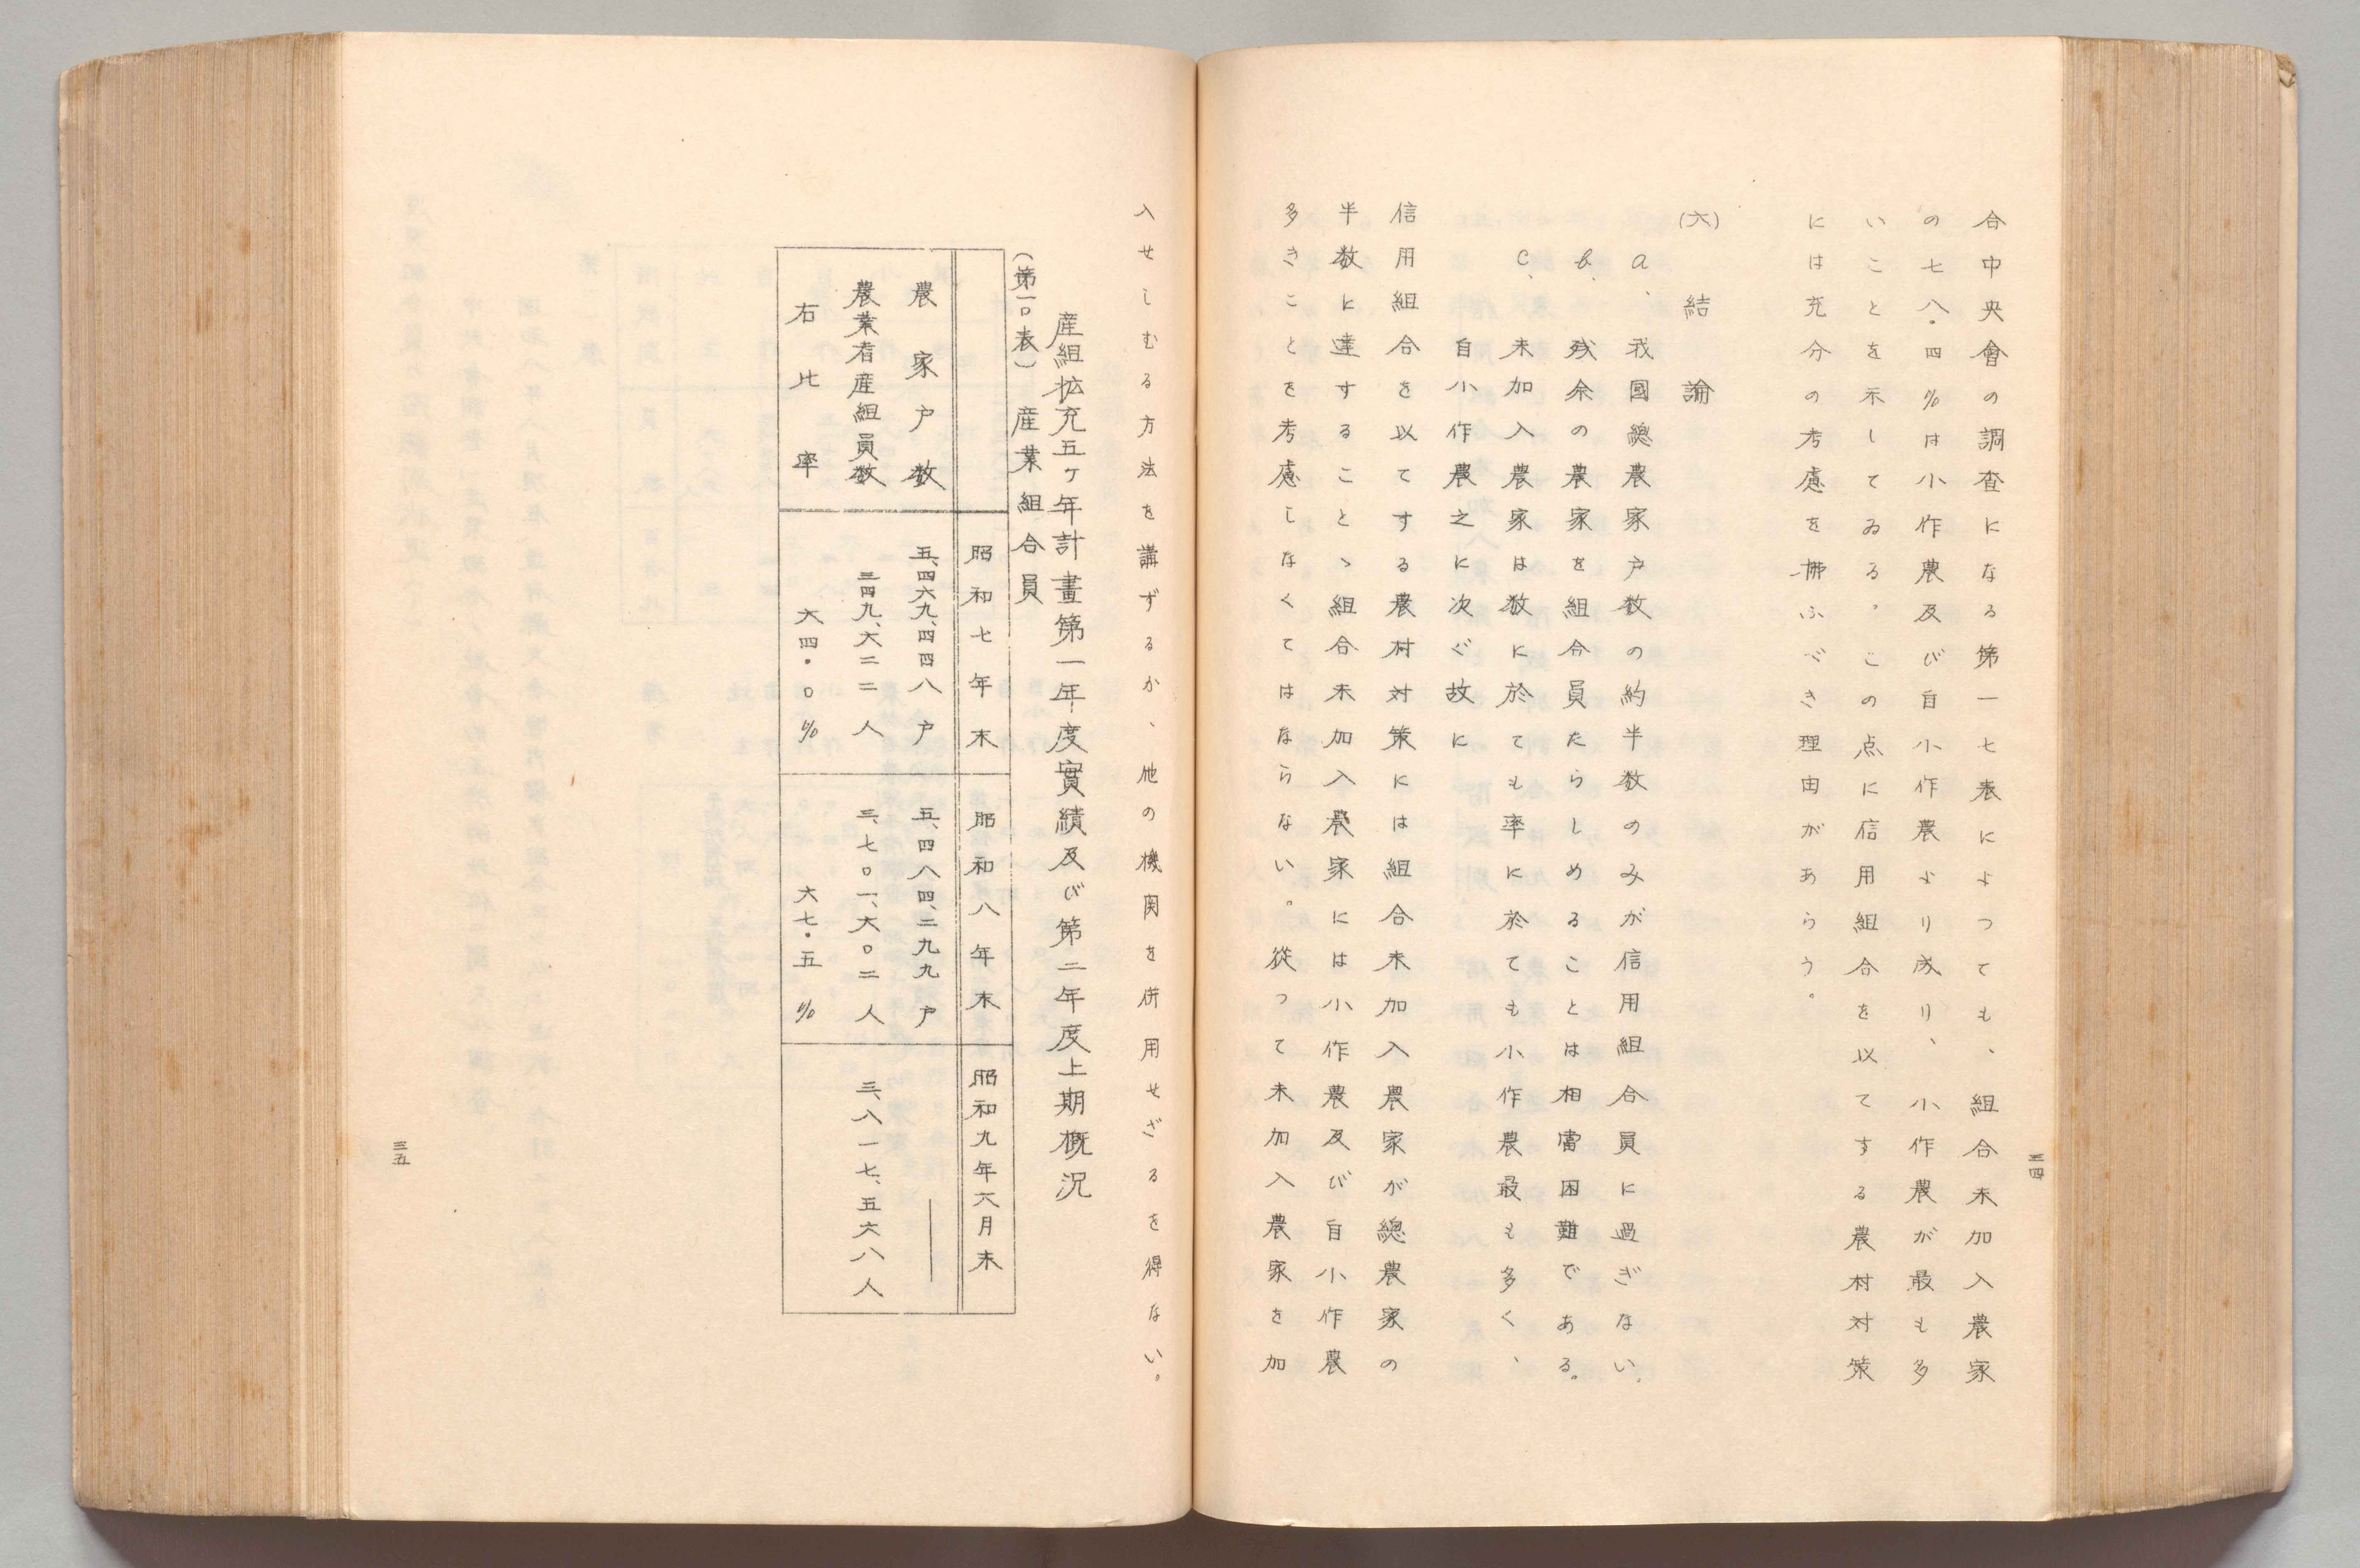 三四
合中央會の調査になる第一七表によつても、組合未加入農家
の七八・四％は小作農及び自小作農より成り、小作農が最も多
いことを示してゐる。この点に信用組合を以てする農村対策
には充分の考慮を拂ふべき理由があらう。
(六)　結　論
a、我國總農家戸数の約半数のみが信用組合員に過ぎない。
b、残余の農家を組合員たらしめることは相當困難である。
c、未加入農家は数に於ても率に於ても小作農最も多く、
自小作農之に次ぐ故に
信用組合を以てする農村対策には組合未加入農家が總農家の
半数に達すること、組合未加入農家には小作農及び自小作農
多きことを考慮しなくてはならない。從つて未加入農家を加
入せしむる方法を講ずるか、他の機関を併用せざるを得ない。
産組拡充五ヶ年計畫第一年度實績及び第二年度上期概況
(第一〇表)　産業組合員
昭和七年末　昭和八年末　昭和九年六月末
農家戸数　五、四六九、四四八戸　五、四八四、二九九戸　──
農業者産組員数　三四九、六二二人　三、七〇一、六〇二人　三、八一七、五六八人
右比率　六四・〇％　六七・五％
三五